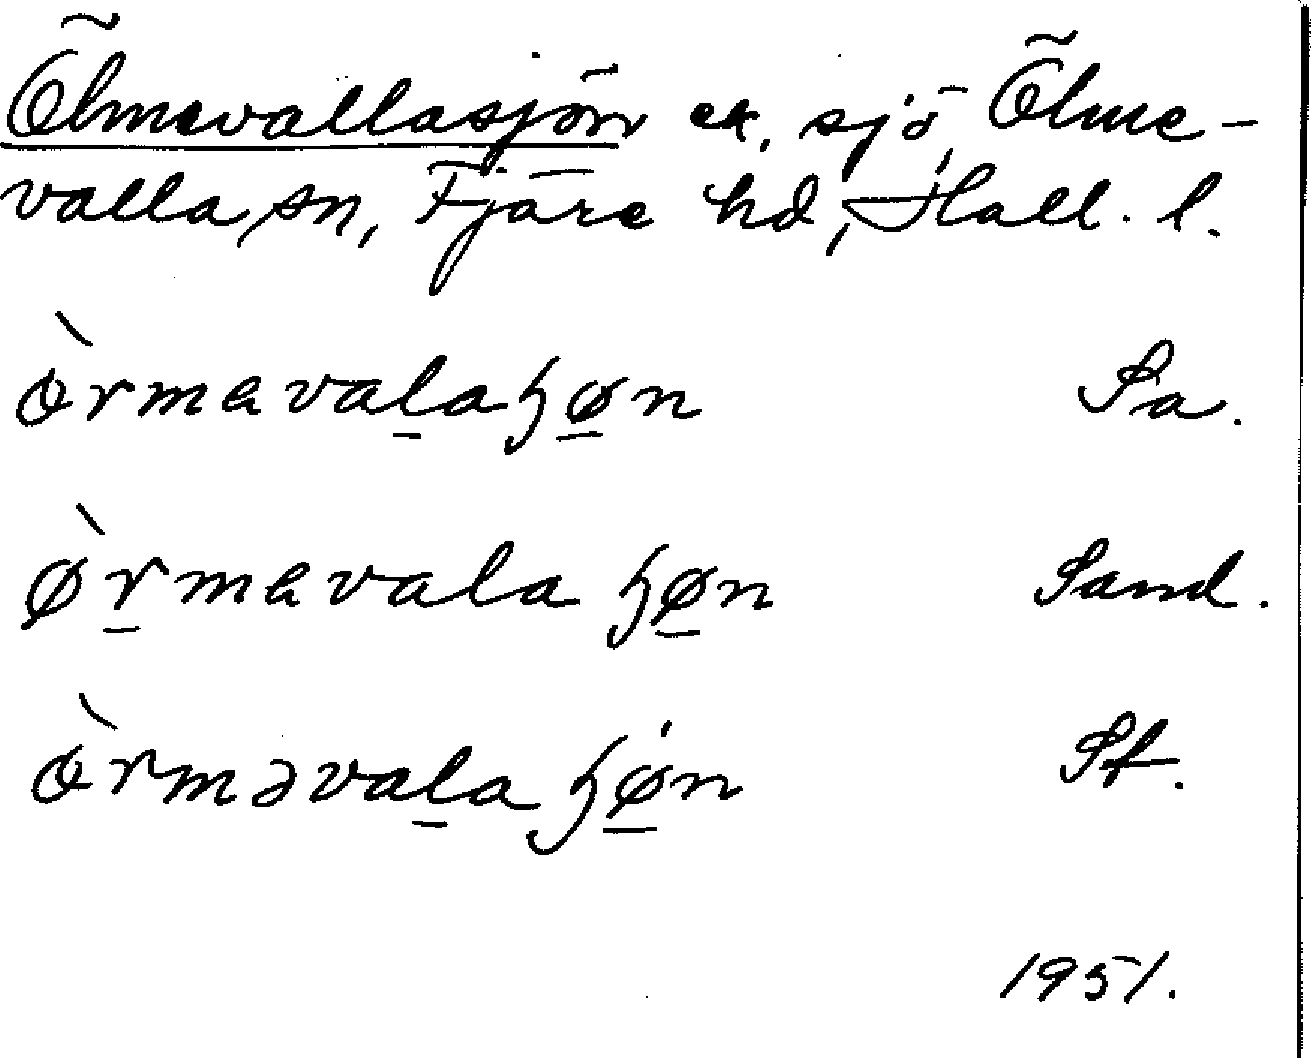 Ölmevallasjön ek. sjö, Ölme-
valla sn, Fjäre hd, Hall. l.
òrmavalaɧøn Sa.
ø̀rmavala ɧøn Sand.
òrməvala ɧøn St.
1951.